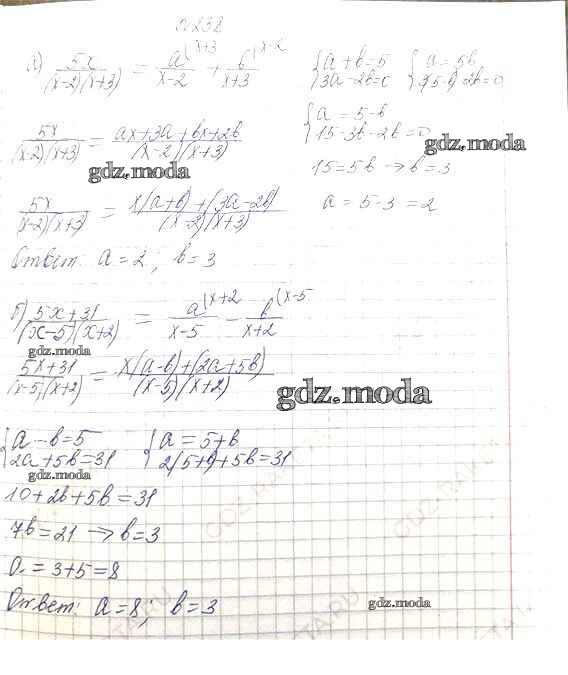 № 238
а) 5x/((x-2)(x+3)) = a^(x+3/(x-2) + b^(x-2/(x+3)
{a+b=5 3a-2b=0 {a=5b 3(5-b)-2b=0
5x/((x-2)(x+3)) = (ax+3a+bx+2b)/((x-2)(x+3))
{a=5-b 15-3b-2b=0
gdz.moda
gdz.moda
15=5b → b=3
5x/((x-2)(x+3)) = (x(a+b)+(3a-2b))/((x-2)(x+3))
a=5-3=2
Ответ: a=2; b=3
б) (5x+31)/((x-5)(x+2)) = a^(x+2/(x-5) - b^(x-5/(x+2)
gdz.moda
(5x+31)/((x-5)(x+2)) = (x(a-b)+(2a+5b))/((x-5)(x+2))
gdz.moda
{a-b=5 2a+5b=31 {a=5+b 2(5+b)+5b=31
gdz.moda
10+2b+5b=31
7b=21 → b=3
a=3+5=8
Ответ: a=8; b=3
gdz.moda